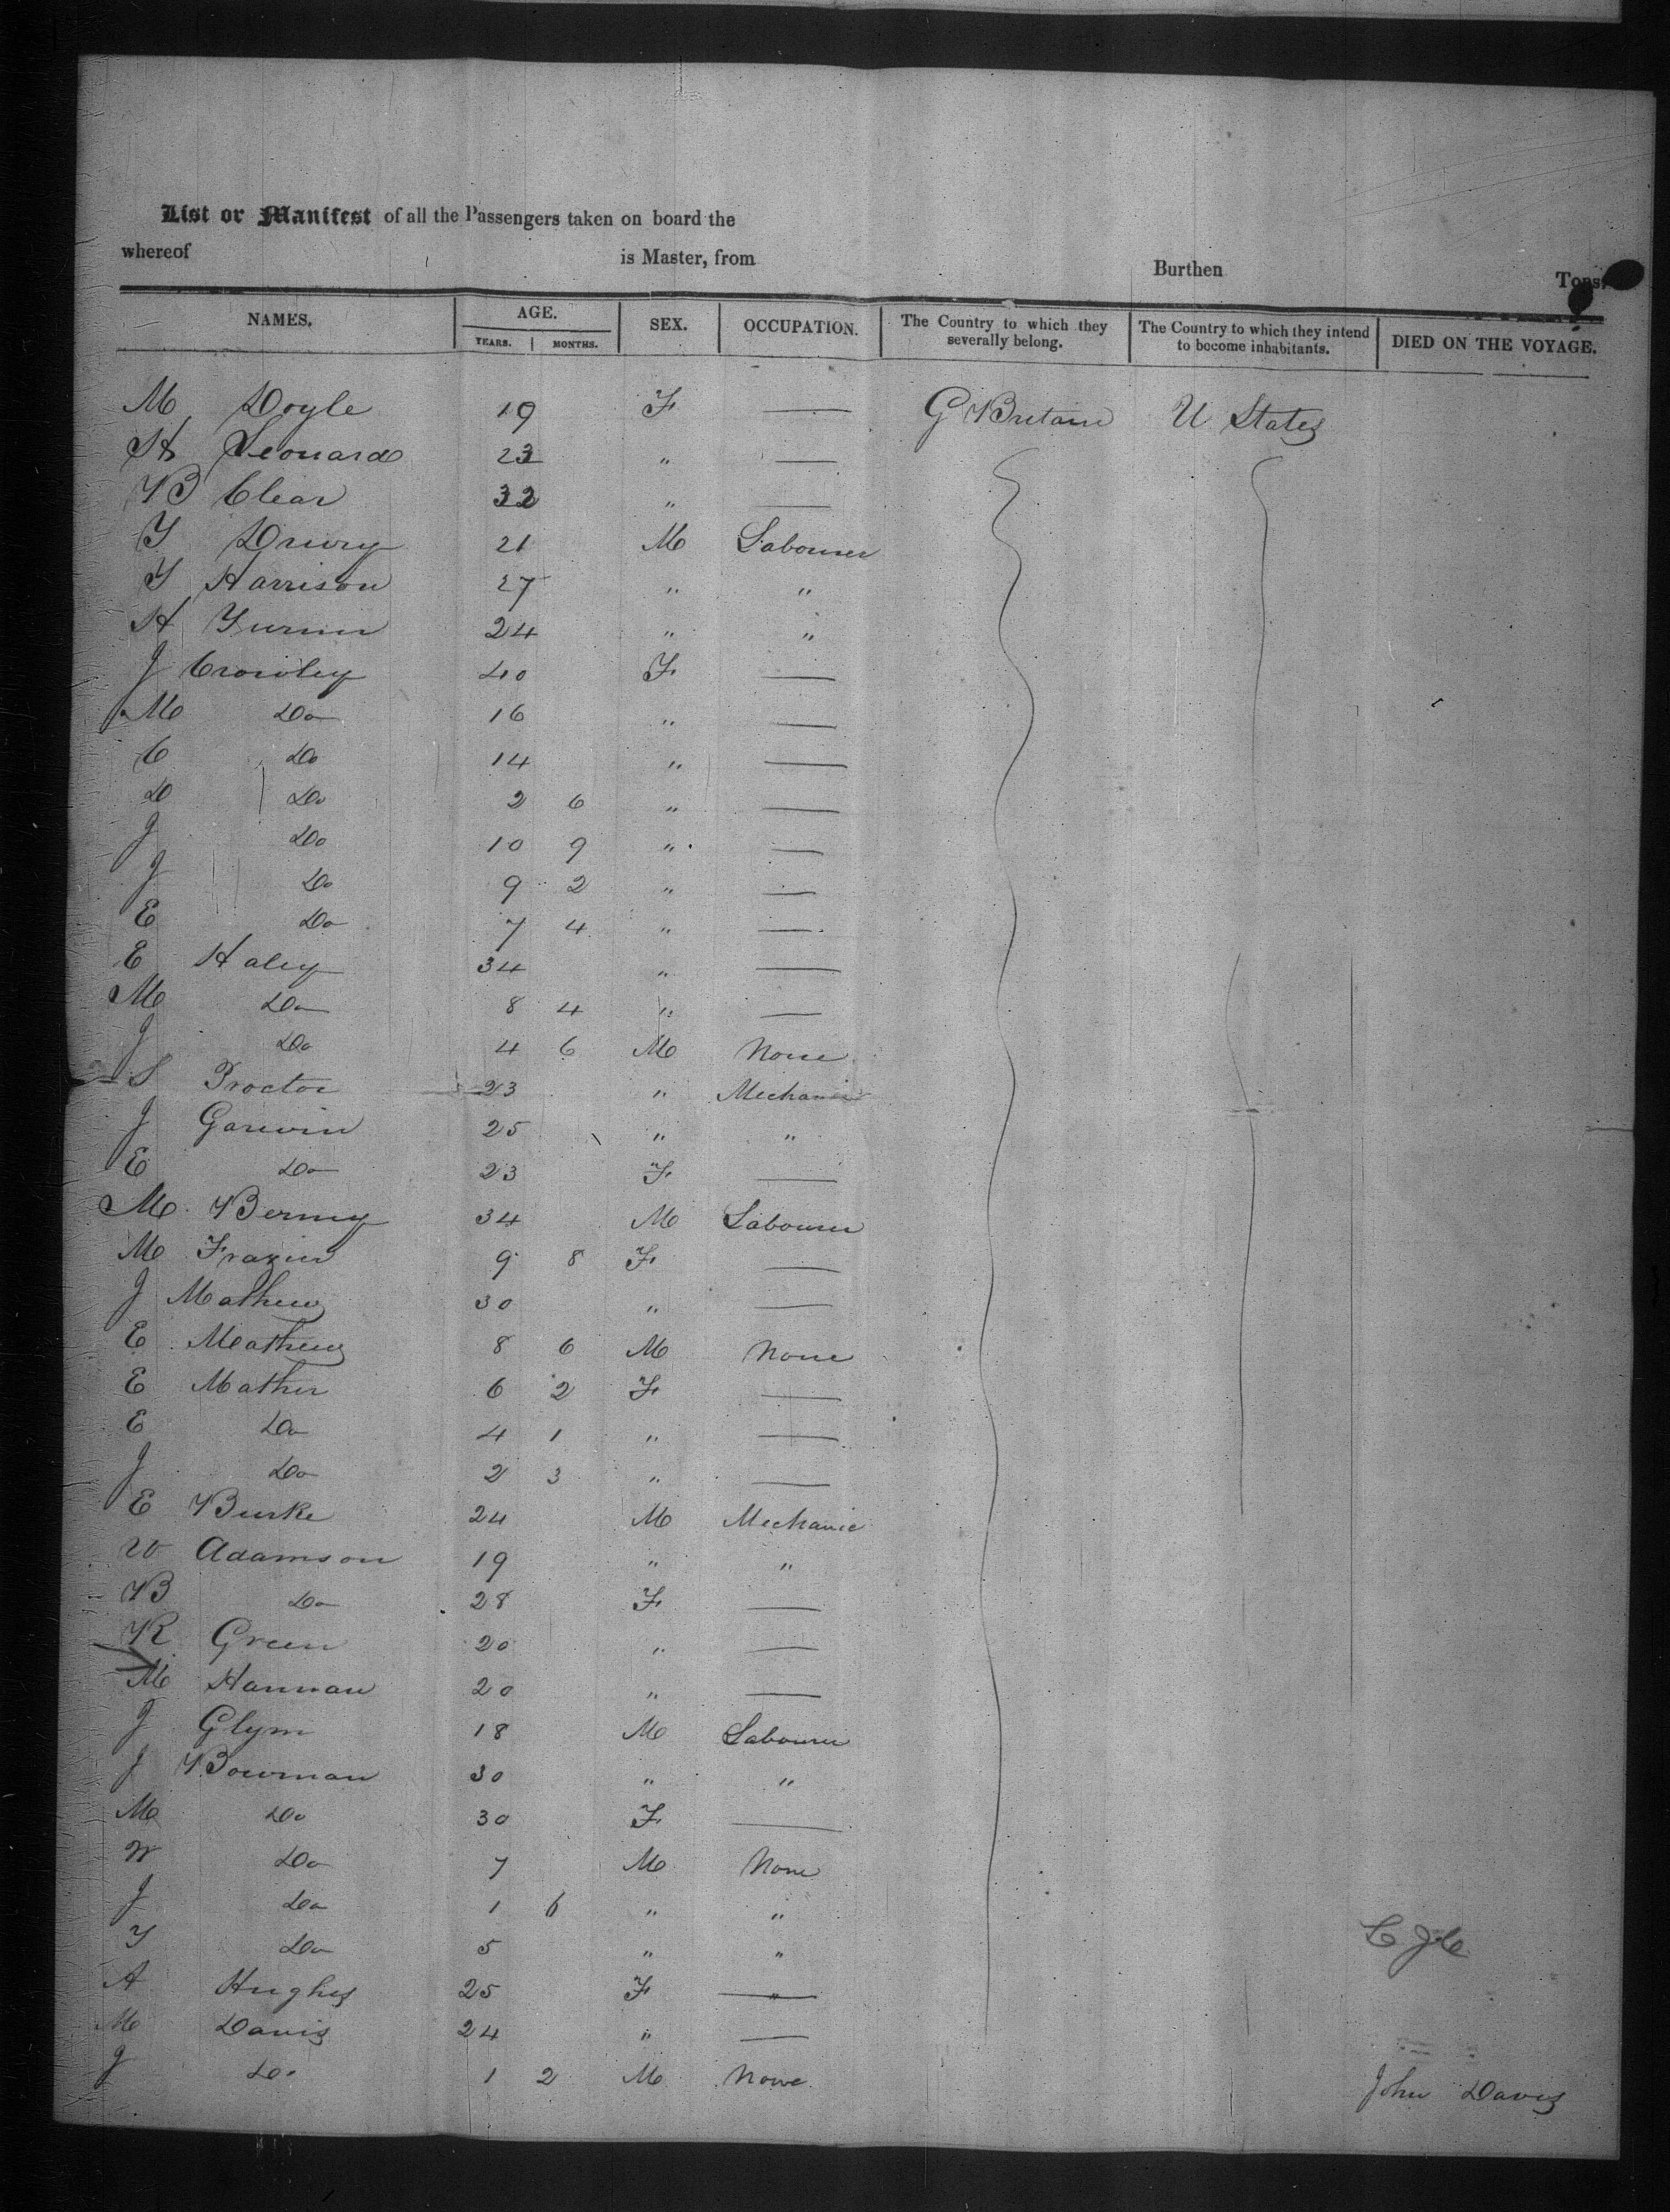 List or Manifest of all the Passengers taken on board the
whereof is Master, from Burthen Tons.
NAMES. AGE. SEX. OCCUPATION. The Country to which they severally belong. The Country to which they intend to become inhabitants. DIED ON THE VOYAGE.
YEARS. MONTHS.
M Doyle 19 F — G Britain U States
H Leonard 23 " —
B Clear 32 " —
T Drury 21 M Labourer
T Harrison 27 " "
H 24 " "
J Crowley 40 F —
M Do 16 " —
C Do 14 " —
D Do 2 6 " —
J Do 10 9 " —
J Do 9 2 " —
E Do 7 4 " —
E Haley 34 " —
M Do 8 4 " —
J Do 4 6 M None
S Proctor 23 " Mechanic
J Garwin 25 " "
E Do 23 F —
M Berney 34 M Labourer
M Frazier 9 8 F —
J Mathews 30 " —
E Mathews 8 6 M None
E Mather 6 2 F —
E Do 4 1 " —
J Do 2 3 " —
E Burke 24 M Mechanic
W Adamson 19 " "
B Do 28 F —
R Green 20 " —
M Hannan 20 " —
J Glynn 18 M Labourer
J Bowman 30 " "
M Do 30 F —
W Do 7 M None
J Do 1 6 " "
T Do 5 " "
A Hughes 25 F "
M Davis 24 " —
J Do 1 2 M None John Davis